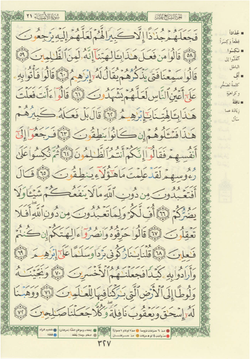 فَجَعَلَهُمْ جُذَٰذًا إِلَّا كَبِيرًا لَّهُمْ لَعَلَّهُمْ إِلَيْهِ يَرْجِعُونَ
٥٨ قَالُوا۟ مَن فَعَلَ هَٰذَا بِـَٔالِهَتِنَآ إِنَّهُۥ لَمِنَ ٱلظَّٰلِمِينَ ٥٩
قَالُوا۟ سَمِعْنَا فَتًى يَذْكُرُهُمْ يُقَالُ لَهُۥٓ إِبْرَٰهِيمُ ٦٠ قَالُوا۟ فَأْتُوا۟ بِهِۦ
عَلَىٰٓ أَعْيُنِ ٱلنَّاسِ لَعَلَّهُمْ يَشْهَدُونَ ٦١ قَالُوٓا۟ ءَأَنتَ فَعَلْتَ
هَٰذَا بِـَٔالِهَتِنَا يَٰٓإِبْرَٰهِيمُ ٦٢ قَالَ بَلْ فَعَلَهُۥ كَبِيرُهُمْ
هَٰذَا فَسْـَٔلُوهُمْ إِن كَانُوا۟ يَنطِقُونَ ٦٣ فَرَجَعُوٓا۟ إِلَىٰٓ
أَنفُسِهِمْ فَقَالُوٓا۟ إِنَّكُمْ أَنتُمُ ٱلظَّٰلِمُونَ ٦٤ ثُمَّ نُكِسُوا۟ عَلَىٰ
رُءُوسِهِمْ لَقَدْ عَلِمْتَ مَا هَٰٓؤُلَآءِ يَنطِقُونَ ٦٥ قَالَ
أَفَتَعْبُدُونَ مِن دُونِ ٱللَّهِ مَا لَا يَنفَعُكُمْ شَيْـًٔا وَلَا
يَضُرُّكُمْ ٦٦ أُفٍّ لَّكُمْ وَلِمَا تَعْبُدُونَ مِن دُونِ ٱللَّهِ أَفَلَا
تَعْقِلُونَ ٦٧ قَالُوا۟ حَرِّقُوهُ وَٱنصُرُوٓا۟ ءَالِهَتَكُمْ إِن كُنتُمْ فَٰعِلِينَ
٦٨ قُلْنَا يَٰنَارُ كُونِى بَرْدًا وَسَلَٰمًا عَلَىٰٓ إِبْرَٰهِيمَ ٦٩
وَأَرَادُوا۟ بِهِۦ كَيْدًا فَجَعَلْنَٰهُمُ ٱلْأَخْسَرِينَ ٧٠ وَنَجَّيْنَٰهُ
وَلُوطًا إِلَى ٱلْأَرْضِ ٱلَّتِى بَٰرَكْنَا فِيهَا لِلْعَٰلَمِينَ ٧١ وَوَهَبْنَا
لَهُۥٓ إِسْحَٰقَ وَيَعْقُوبَ نَافِلَةً وَكُلًّا جَعَلْنَا صَٰلِحِينَ ٧٢
٣٢٧